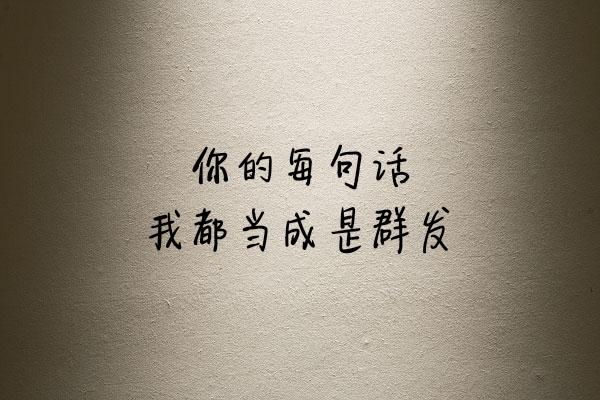 你的每句话
我都当成是群发